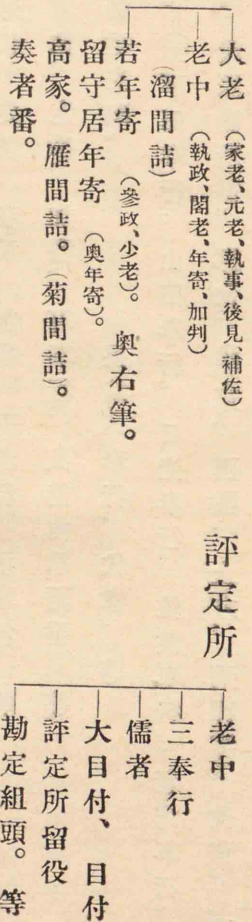 大老（家老、元老、執事、後見、補佐）
老中（執政、閣老、年寄、加判）
（溜間詰）
若年寄（參政、少老）。奥右筆。
留守居年寄（奥年寄）。
高家。雁間詰。（菊間詰）。
奏者番。
評定所
老中
三奉行
儒者
大目付、目付
評定所留役
勘定組頭。等